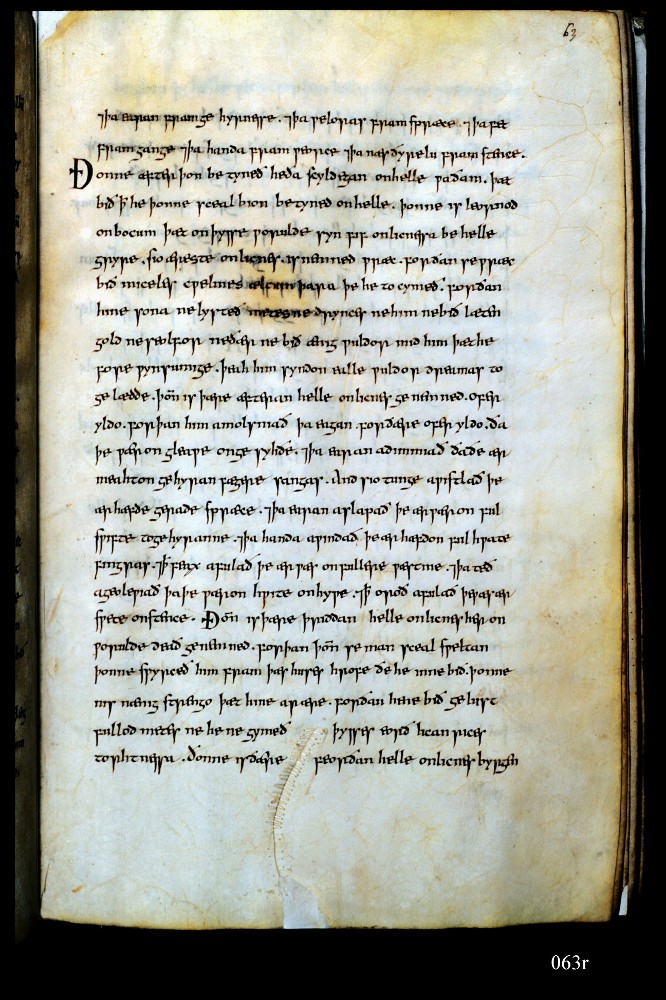 ⁊ þa earan fram gehyrnesse . ⁊ þa ƿeloras fram spræce . ⁊ þa fet
fram gange ⁊ þa handa fram ƿeorce ⁊ þa næsðyrelu fram stence .
Ðonne æfter þon betyneð he ða scyldegan on helle ƿa ðam . þæt
bið þ̄ he þonne sceal bion betyned on helle . þonne is leornod
on bocum þæt on þysse ƿorulde syn fif onlicnessa be helle
gryre . sio æreste onlicnes . is nemned ƿræc . forðan se ƿræc
bið miceles cƿelmes ælcum þara þe he to cymeð . forðan
hine sona ne lysteð metes ne drynces ne him ne bið læten
gold ne seolfor ne ðær ne bið ænig ƿuldor mid him þæt he
fore ƿynsumige . þeah him syndon ealle ƿuldor dreamas to
ge lædde . þoñ is þære æfteran helle onlicnes ge nemned . ofer
yldo . for þan him amolsniað þa eagan . for ðære ofer yldo . ða
þe ƿæron gleaƿe on ge syhðe . ⁊ þa earan adimmiað ða ðe ær
meahton gehyran fægere sangas . And sio tunge aƿistlað þe
ær hæfde gerade spræce . ⁊ þa earan aslapað þe ær ƿæron ful
sƿifte to gehyranne . ⁊ þa handa aƿindað þe ær hæfdon ful hƿæte
fingras . ⁊ þ̄ feax afealað þe ær ƿæs on fullere ƿæstme . ⁊ þa teð
ageoleƿiað þa þe ƿæron hƿite on hyƿe . ⁊ þ̄ oroð afulað þe ƿæs ær
sƿete on stence . Ðoñ is þære þriddan helle onlicnes her on
ƿorulde deað genemned . forþan þoñ se man sceal sƿeltan
þonne sƿyrceð him fram þæs huses hrofe ðe he inne bið . þonne
nis nænig strengo þæt hine arære . forðan he ne bið gelust
fullod metes ne he ne gymeð þysses eorðlican rices
torhtnessa . Ðonne is ðære feorðan helle onlicnes byrgen
63
063r